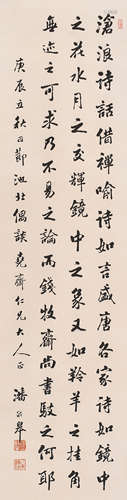 滄浪詩話借禪喻詩如言盛唐各家詩如鏡中
之花水月之交輝鏡中之象又如羚羊之挂角
無迹之可求乃不易之論而錢牧齋尚書駁之何耶
庚辰立秋節池北偶談 堯齋仁兄大人正 潘公皋